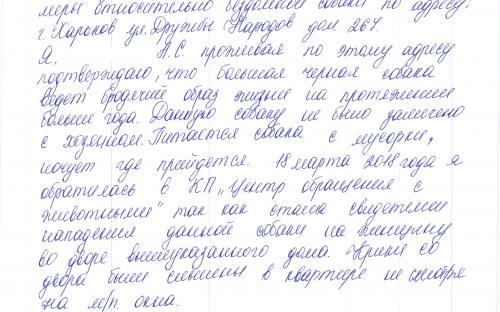 меры относительно бездомной собаки по адресу:
г. Харьков ул. Дружбы Народов дом 267.
Я, А.С. проживая по этому адресу
подтверждаю, что большая черная собака
ведет бродячий образ жизни на протяжении
больше года. Данную собаку не было замечено
с хозяином. Питается собака с мусорки,
ночует где прийдется. 18 марта 2018 года я
обратилась в КП „Центр обращения с
животными" так как стала свидетелем
нападения данной собаки на женщину
во дворе вышеуказанного дома. Крики со
двора были слышены в квартире не смотря
на м/п. окна.